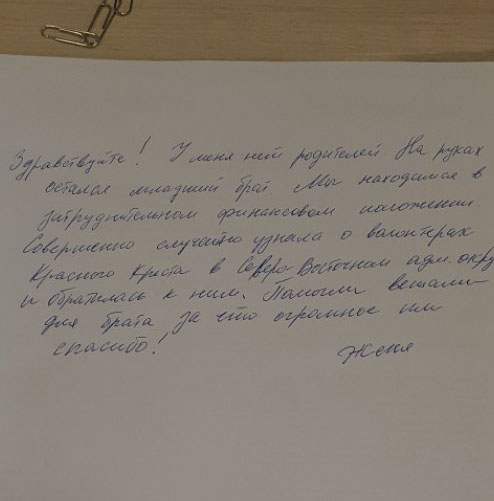 Здравствуйте! У меня нет родителей. На руках
остался младший брат. Мы находимся в
затруднительном финансовом положении.
Совершенно случайно узнала о волонтерах
Красного Креста в Северо-Восточном адм. округ
и обратилась к ним. Помогли вещами
для брата за что огромное им
спасибо!
Женя